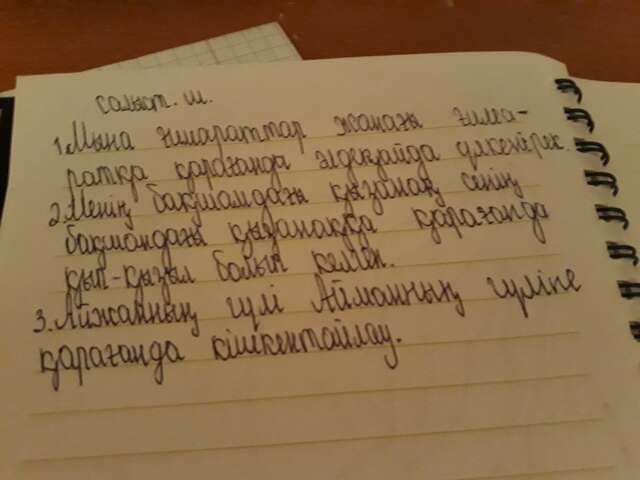 салыст. ш.
1. Мына ғимараттар жанағы ғима-
ратқа қарағанда әлдеқайда үлкенірек.
2. Менің бақшамдағы қызанақ сенің
бақшандағы қызанаққа қарағанда
қып-қызыл болып келген.
3. Айжанның гүлі Айманның гүліне
қарағанда кішкентайлау.